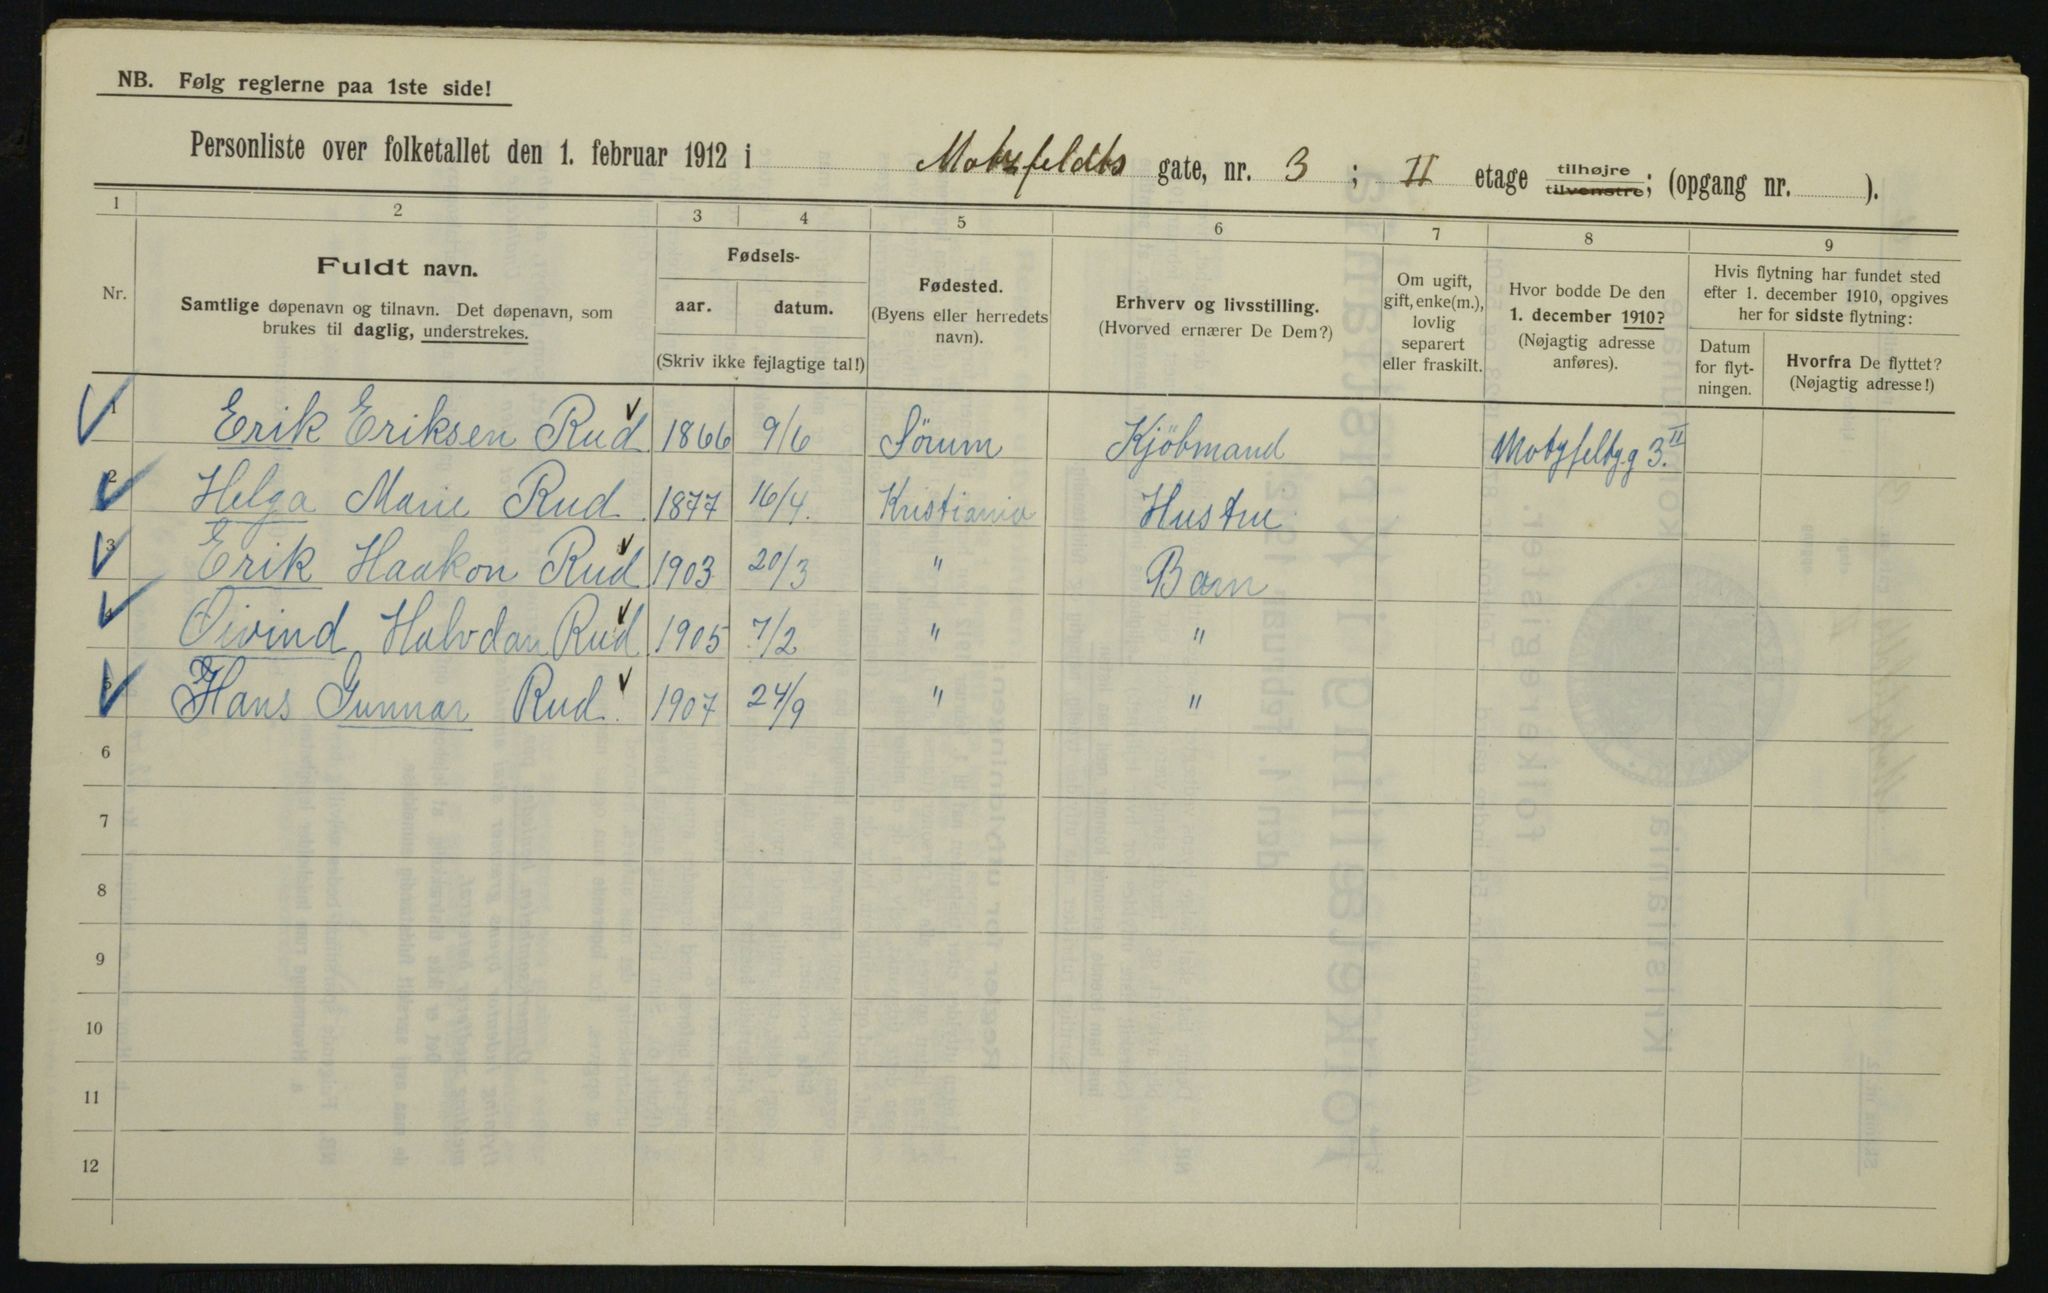 NB. Følg reglerne paa 1ste side!
Personliste over folketallet den 1. februar 1912 i Motzfeldts gate, nr. 3 ; II etage tilhøjre tilvenstre; (opgang nr. ).
1 2 3 4 5 6 7 8 9
Nr.
Fuldt navn.
Samtlige døpenavn og tilnavn. Det døpenavn, som
brukes til daglig, understrekes.
Fødsels-
aar. datum.
(Skriv ikke fejlagtige tal!)
Fødested.
(Byens eller herredets
navn).
Erhverv og livsstilling.
(Hvorved ernærer De Dem?)
Om ugift,
gift, enke(m.),
lovlig
separert
eller fraskilt.
Hvor bodde De den
1. december 1910?
(Nøjagtig adresse
anføres).
Hvis flytning har fundet sted
efter 1. december 1910, opgives
her for sidste flytning:
Datum
for flyt-
ningen.
Hvorfra De flyttet?
(Nøjagtig adresse!)
1 Erik Eriksen Rud 1866 9/6 Sörum Kjöbmand Motzfeltg 3. II
2 Helga Marie Rud 1877 16/4. Kristiania Hustru
3 Erik Haakon Rud 1903 20/3 " Barn
4 Oivind Halvdan Rud 1905 7/2 " "
5 Hans Gunnar Rud. 1907 24/9 " "
6
7
8
9
10
11
12